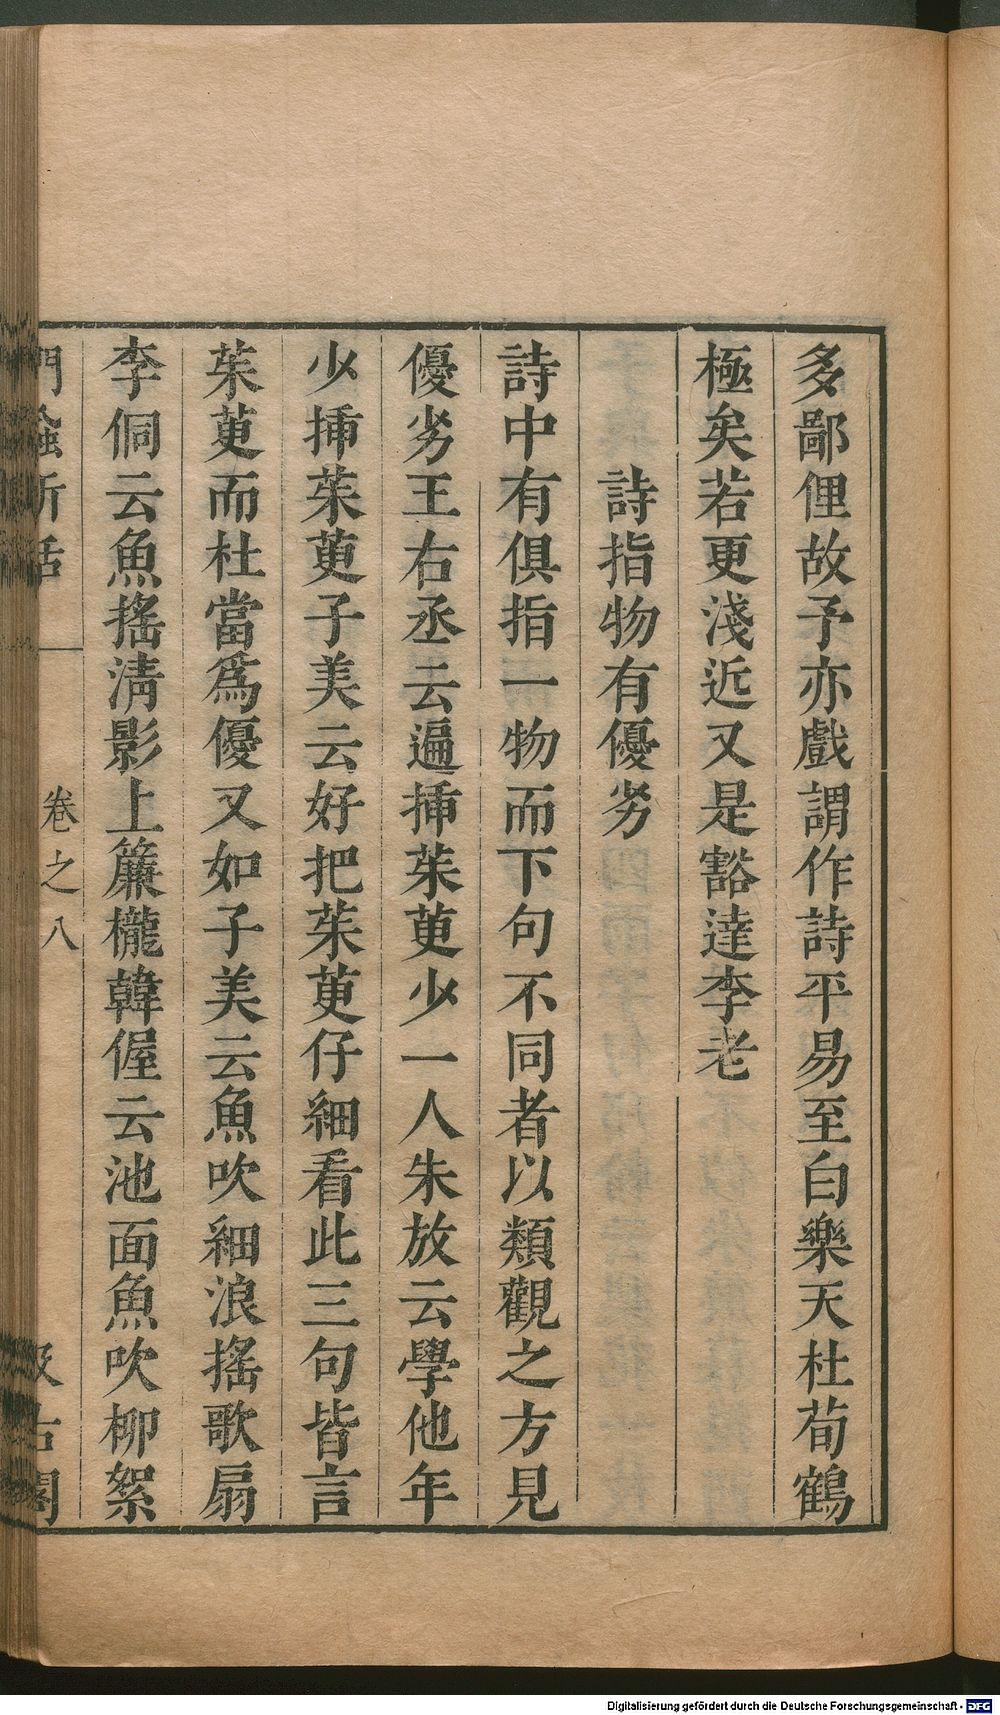 多鄙俚故予亦戲謂作詩平易至白樂天杜荀鶴
極矣若更淺近又是豁達李老
詩指物有優劣
詩中有俱指一物而下句不同者以類觀之方見
優劣王右丞云遍揷茱萸少一人朱放云學他年
少揷茱萸子美云好把茱萸仔細看此三句皆言
茱萸而杜當爲優又如子美云魚吹細浪搖歌扇
李侗云魚搖淸影上簾櫳韓偓云池面魚吹柳絮
門蝨新話 卷之八 汲古閣
Digitalisierung gefördert durch die Deutsche Forschungsgemeinschaft - DFG